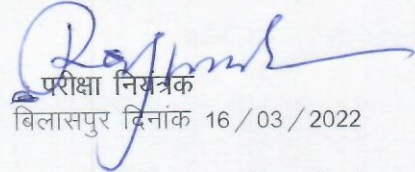 परीक्षा नियंत्रक
बिलासपुर दिनांक 16 / 03 / 2022